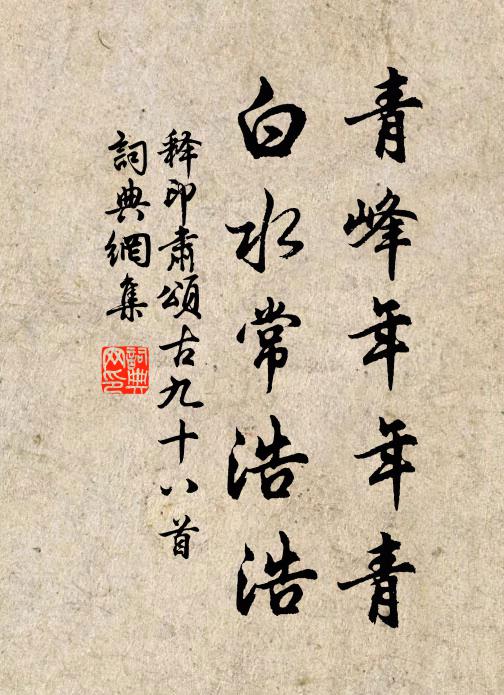 青峰年年青
白水常浩浩
释印肃颂古九十八首
詞典網集
詞典網印